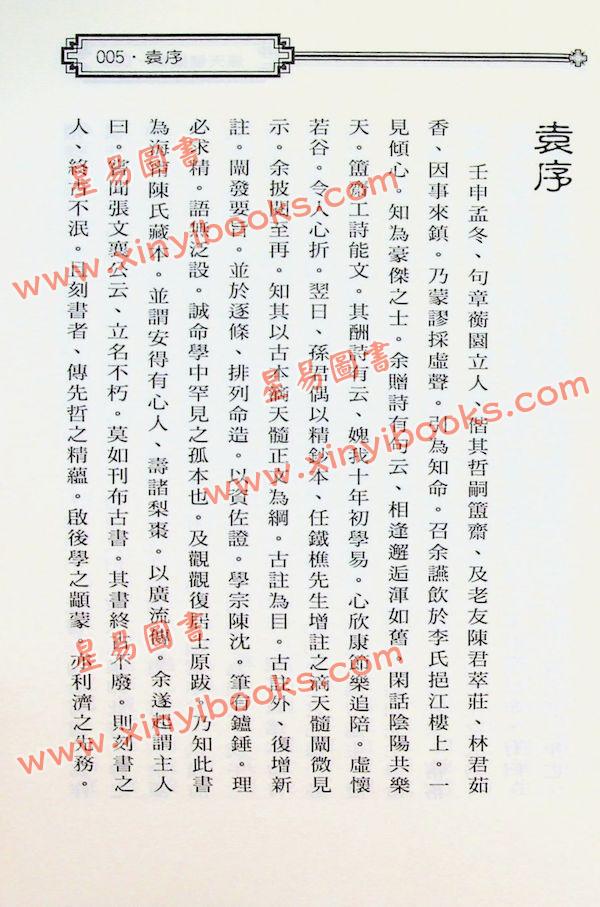 005・袁序
袁序
壬申孟冬、句章蘅園立人、偕其哲嗣簠齋、及老友陳君萃莊、林君茹
香、因事來鎮。乃蒙謬採虛聲。引為知命。召余讌飲於李氏挹江樓上。一
見傾心。知為豪傑之士。余贈詩有句云、相逢邂逅渾如舊。閑話陰陽共樂
天。簠齋工詩能文。其酬詩有云、媿我十年初學易。心欣康節樂追陪。虛懷
若谷。令人心折。翌日、孫君偶以精鈔本、任鐵樵先生增註之滴天髓闡微見
示。余披閱至再。知其以古本滴天髓正文為綱。古註為目。古註外、復增新
註。闡發要旨。並於逐條、排列命造。以資佐證。學宗陳沈。筆有鑪錘。理
必求精。語無泛設。誠命學中罕見之孤本也。及觀觀復居士原跋。乃知此書
為海甯陳氏藏本。並謂安得有心人、壽諸梨棗。以廣流傳。余遂起謂主人
曰。嘗聞張文襄公云、立名不朽。莫如刊布古書。其書終世不廢。則刻書之
人、終古不泯。且刻書者、傳先哲之精蘊。啟後學之顓蒙。亦利濟之先務。
星易圖書
www.xinyibooks.com
星易圖書
www.xinyibooks.com
星易圖書
www.xinyibooks.com